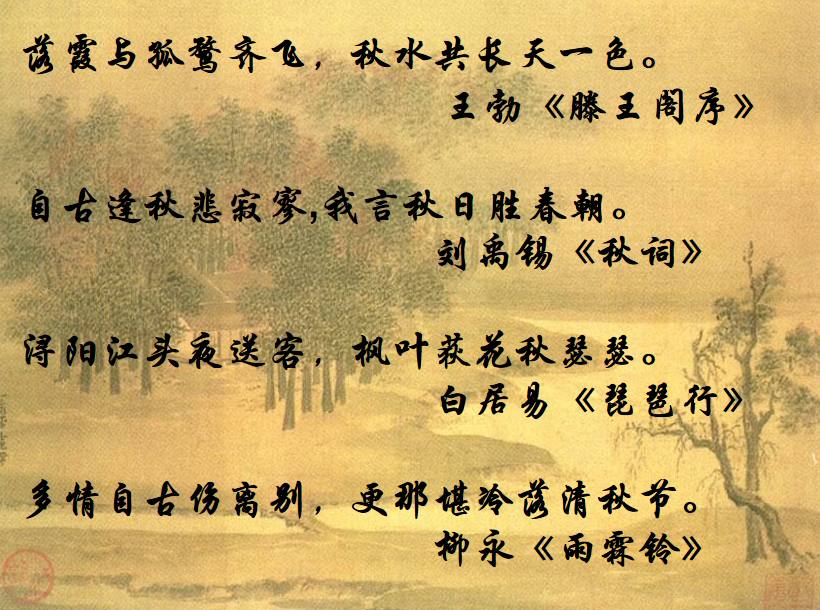 落霞与孤鹜齐飞，秋水共长天一色。
王勃《滕王阁序》
自古逢秋悲寂寥,我言秋日胜春朝。
刘禹锡《秋词》
浔阳江头夜送客，枫叶荻花秋瑟瑟。
白居易《琵琶行》
多情自古伤离别，更那堪冷落清秋节。
柳永《雨霖铃》